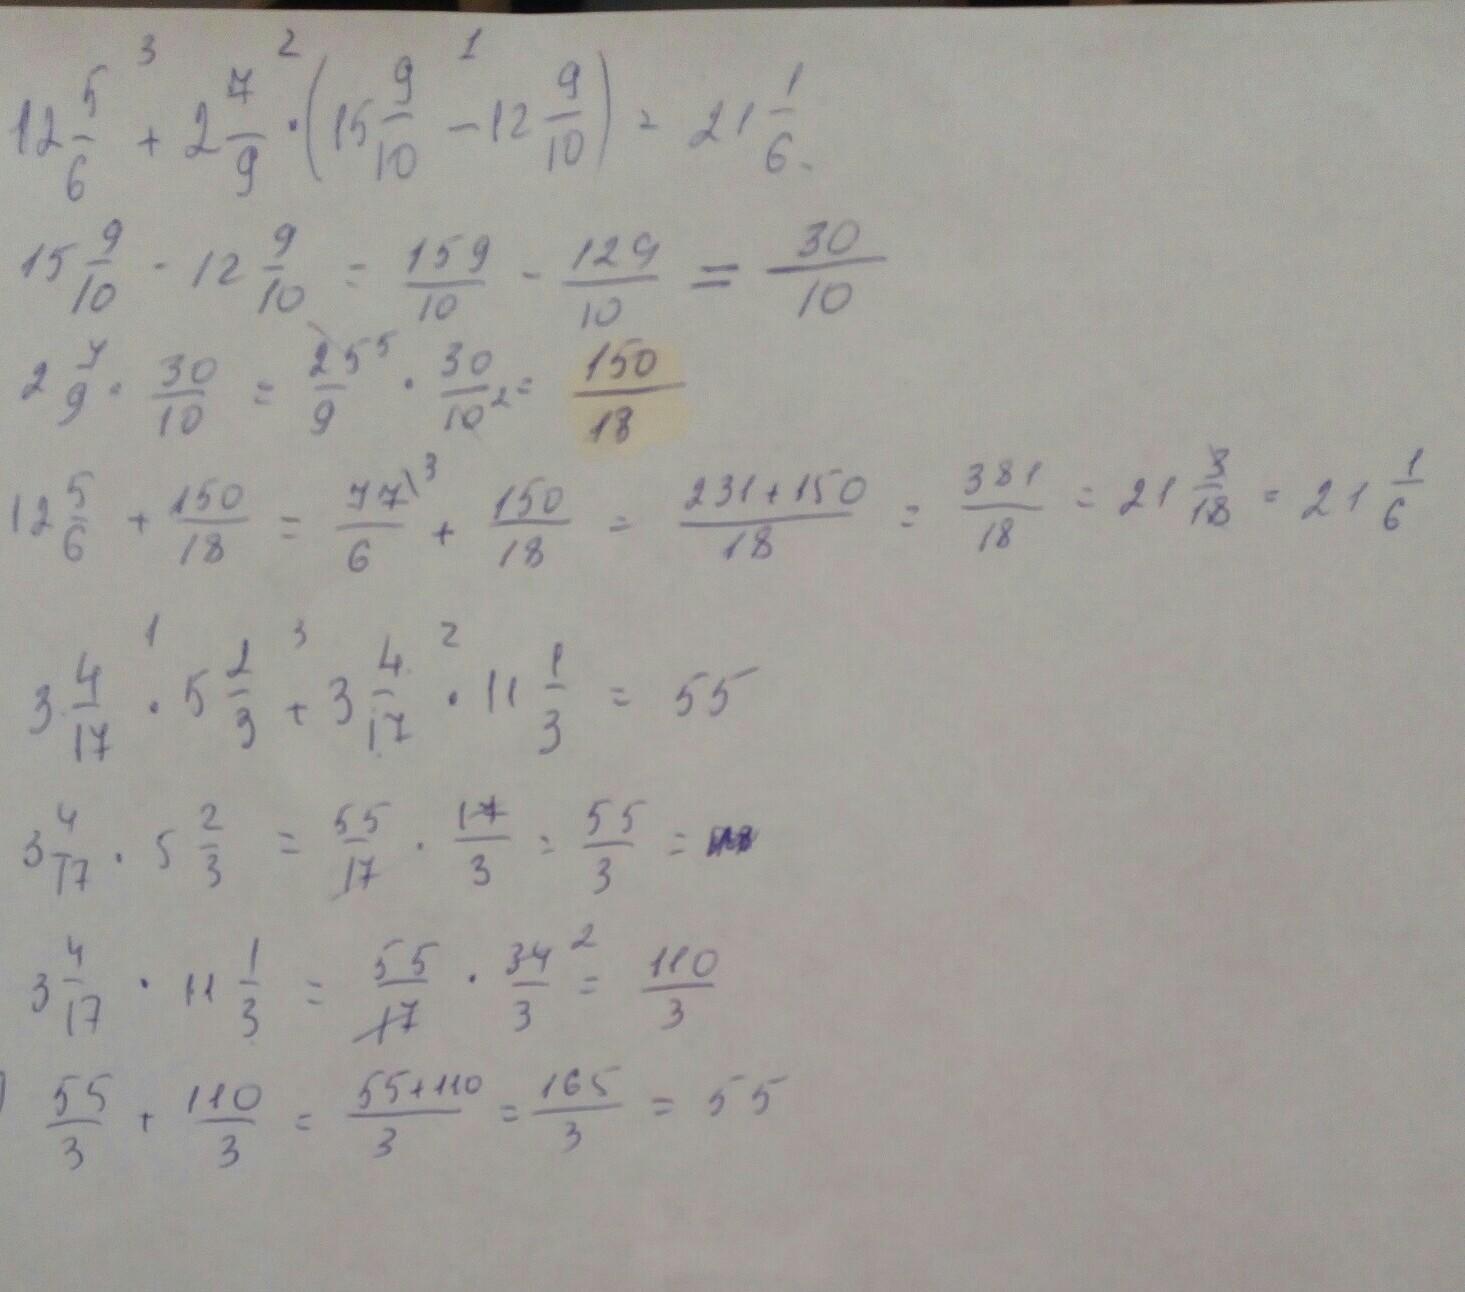 3 2 1
12 5/6 + 2 7/9 · (15 9/10 - 12 9/10) = 21 1/6.
15 9/10 - 12 9/10 = 159/10 - 129/10 = 30/10
2 7/9 · 30/10 = 25 5/9 · 30/10 2 = 150/18
12 5/6 + 150/18 = 77\3/6 + 150/18 = 231+150/18 = 381/18 = 21 3/18 = 21 1/6
1 3 2
3 4/17 · 5 2/3 + 3 4/17 · 11 1/3 = 55
3 4/17 · 5 2/3 = 55/17 · 17/3 = 55/3 =
3 4/17 · 11 1/3 = 55/17 · 34 2/3 = 110/3
) 55/3 + 110/3 = 55+110/3 = 165/3 = 55